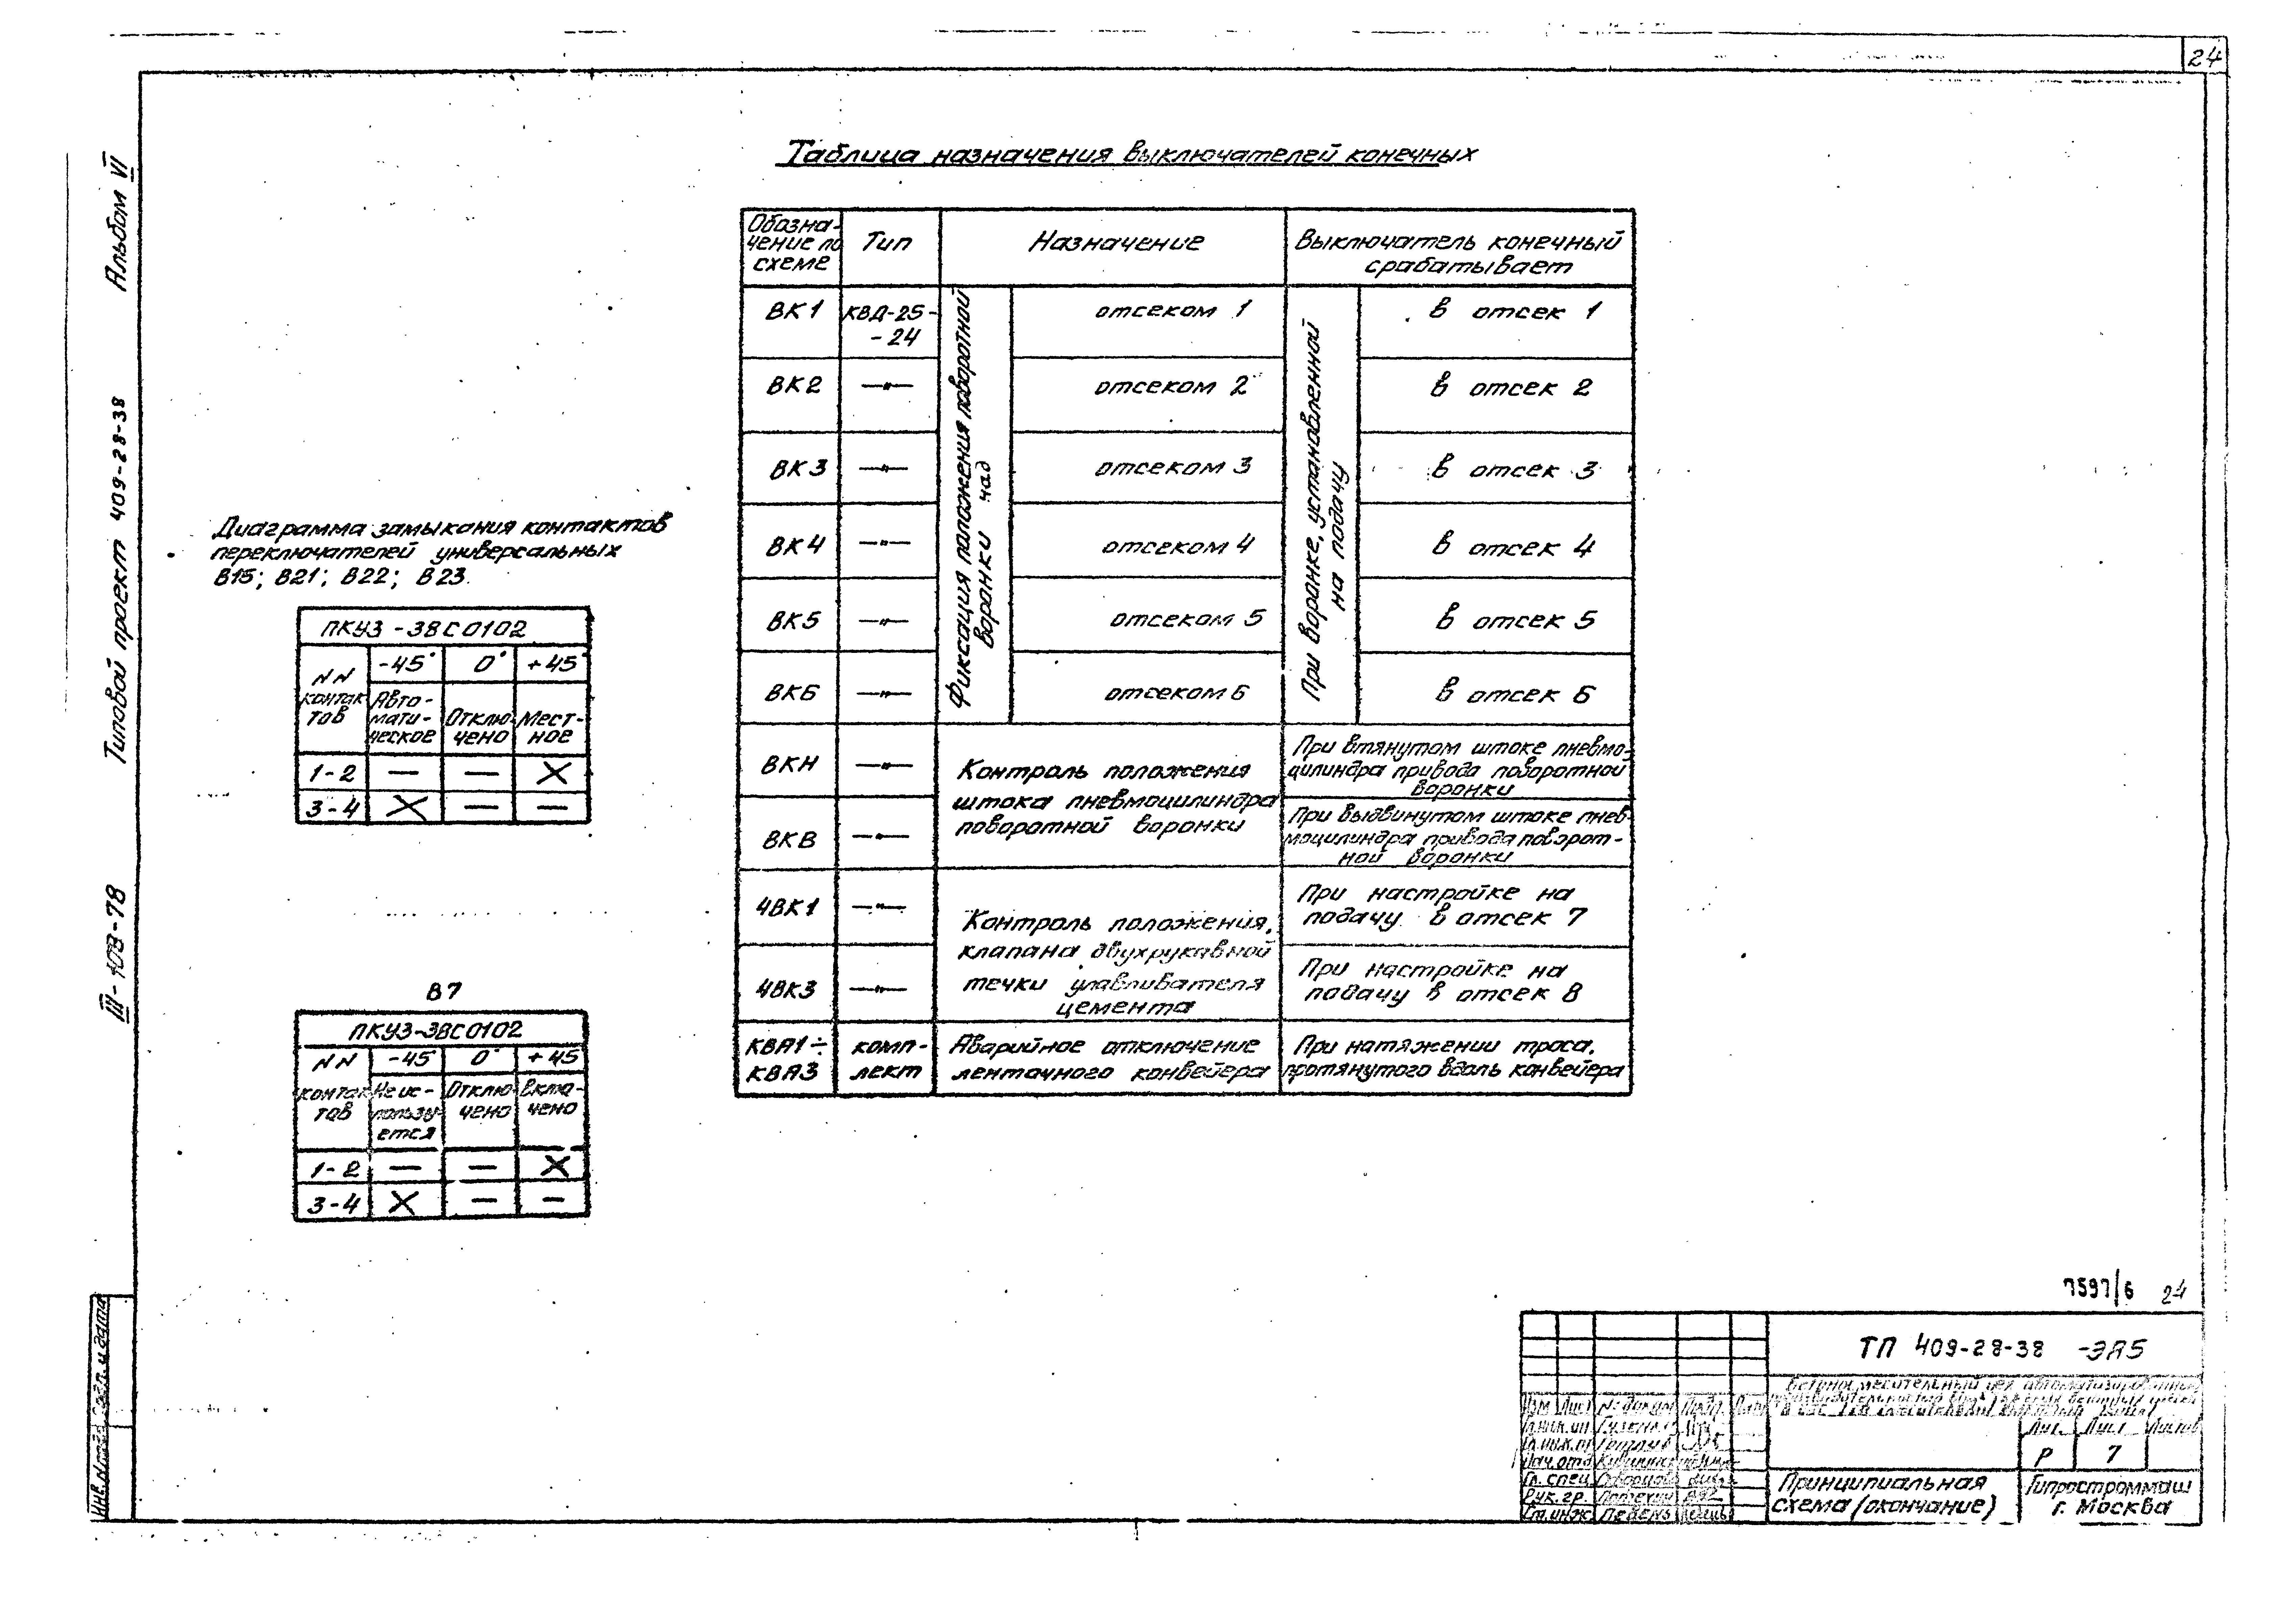 24
Альбом VI
Типовой проект 409-28-38
III-103-78
Таблица назначения выключателей конечных
Обозна-
чение по
схеме
Тип
Назначение
Выключатель конечный
срабатывает
Фиксация положения поворотной
воронки над
При воронке, установленной
на подачу
ВК1
КВД-25-
-24
отсеком 1
в отсек 1
ВК2
—"—
отсеком 2
в отсек 2
ВК3
—"—
отсеком 3
в отсек 3
ВК4
—"—
отсеком 4
в отсек 4
ВК5
—"—
отсеком 5
в отсек 5
ВК6
—"—
отсеком 6
в отсек 6
ВКН
—"—
Контроль положения
штока пневмоцилиндра
поворотной воронки
При втянутом штоке пневмо-
цилиндра привода поворотной
воронки
ВКВ
—"—
При выдвинутом штоке пнев-
моцилиндра привода поворот-
ной воронки
4ВК1
—"—
Контроль положения
клапана двухрукавной
течки улавливателя
цемента
При настройке на
подачу в отсек 7
4ВК3
—"—
При настройке на
подачу в отсек 8
КВА1÷
КВА3
комп-
лект
Аварийное отключение
ленточного конвейера
При натяжении троса,
протянутого вдоль конвейера
Диаграмма замыкания контактов
переключателей универсальных
В15; В21; В22; В23.
ПКУ3-38С0102
NN
контак
тов
-45°
0°
+45°
Авто-
мати-
ческое
Отклю-
чено
Мест-
ное
1-2 — — X
3-4 X — —
В7
ПКУ3-38С0102
NN
контак
тов
-45°
0°
+45
Не ис-
пользу-
ется
Отклю-
чено
Вклю-
чено
1-2 — — X
3-4 X — —
7597/6 24
ТП 409-28-38 -ЭА5
Изм Лист № докум Подп.
Нач. отд
Гл. спец
Рук. гр.
Ст. инж.
Лит. Лист Листов
Р 7
Принципиальная
схема (окончание)
Гипростроммаш
г. Москва
Инв. № подл. Подп. и дата